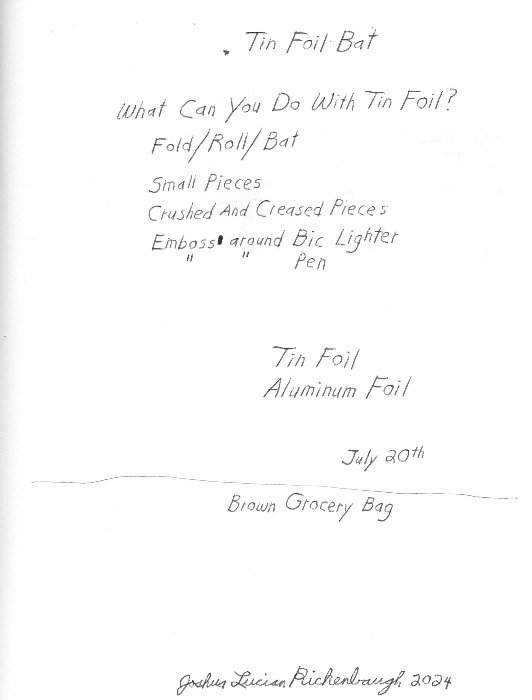 Tin Foil Bat
What Can You Do With Tin Foil?
Fold/Roll/Bat
Small Pieces
Crushed And Creased Pieces
Emboss around Bic Lighter
" " Pen
Tin Foil
Aluminum Foil
July 20th
Brown Grocery Bag
Joshua Lucian Richenbaugh 2024